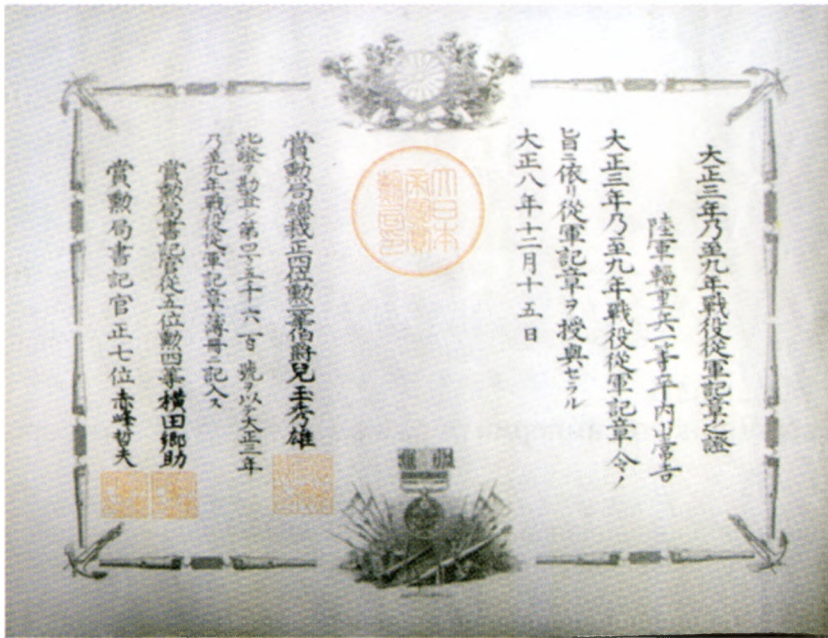 大正三年乃至九年戰役從軍記章之證
陸軍輜重兵一等卒內山常吉
大正三年乃至九年戰役從軍記章令ノ
旨ニ依リ從軍記章ヲ授與セラル
大正八年十二月十五日
大日本帝國賞勳局印
賞勳局總裁正四位勳二等伯爵兒玉秀雄
此證ヲ勘查シ第四十五萬六百號ヲ以テ大正三年
乃至九年戰役從軍記章簿冊ニ記入ス
賞勳局書記官從五位勳四等橫田鄉助
賞勳局書記官正七位赤峰哲夫